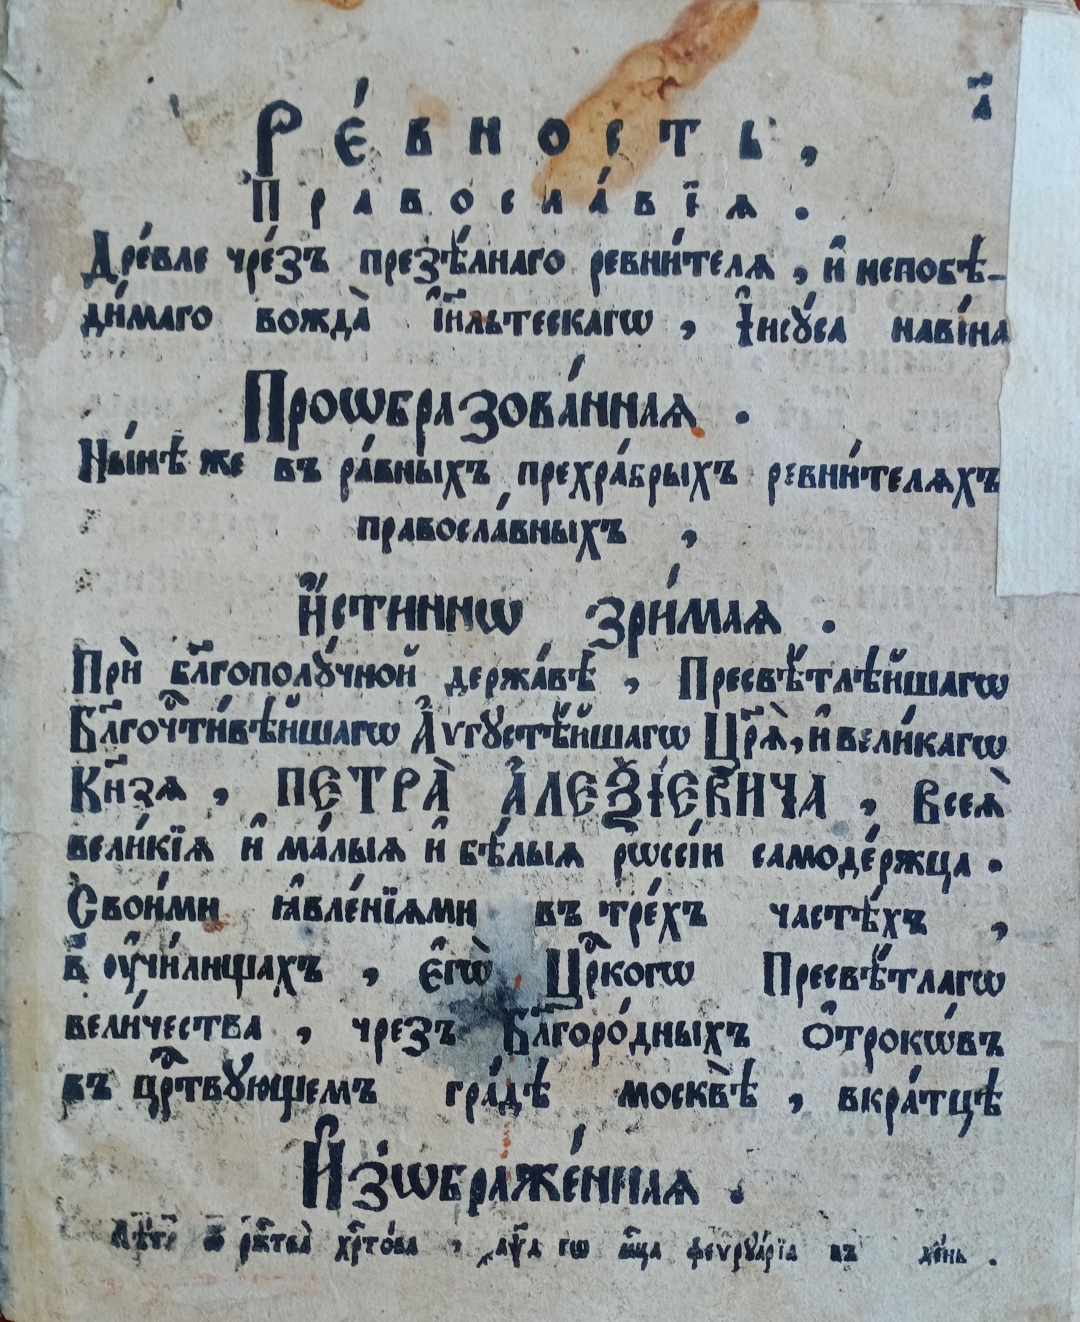 а҃
Ре́вность,
Правосла́вїѧ.
Дре́вле чре́зъ презѣ́лнаго ревни́телѧ, и҆ непобѣ-
ди́маго вожда̀ і҆и҃льтескагѡ, І҆исꙋ́са наві́на
Проѡбразова́ннаѧ.
Ны́нѣ же въ ра́вныхъ прехра́брыхъ ревни́телѧхъ
правосла́вныхъ,
И҆́стиннѡ зри́маѧ.
Прѝ бл҃гополꙋ́чной держа́вѣ, Пресвѣ́тлѣйшагѡ
Бл҃гочⷭ҇ти́вѣйшагѡ А҆ѵгꙋстѣ́йшагѡ Цр҃ѧ̀, и҆ вели́кагѡ
Кн҃зѧ, ПЕТРА̀ А҆ЛЕѮІ́ЕВИЧА, Всеѧ̀
вели́кїѧ и҆ ма́лыѧ и҆ бѣ́лыѧ рѡссі́и самоде́ржца.
Свои́ми ꙗ҆вле́нїѧми въ тре́хъ часте́хъ,
в̾ ᲂу҆чи́лищахъ, є҆гѡ̀ Црⷭ҇когѡ Пресвѣ́тлагѡ
вели́чества, чрезъ Бл҃горо́дныхъ Ѻ҆трокѡ́въ
въ црⷭ҇твꙋющемъ гра́дѣ москвѣ̀, вкра́тцѣ
И҆зѡбраже́ннаѧ.
Лѣ́та ѿ ржⷭ҇тва̀ хрⷭ҇то́ва, ҂аѱ҃д гѡ мцⷭ҇а феѵрꙋа́рїа въ де́нь.